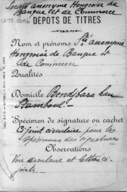 Sté anonyme Hongroise de
Banque et de Commerce
DÉPÔTS DE TITRES
Nom et prénoms Sté anonyme
Hongroise de Banque &
de Commerce
Qualités
Domicile
Stamboul
Spécimen de signature ou cachet
Ci-joint circulaire
Observations
Voir circulaire et lettre ci-